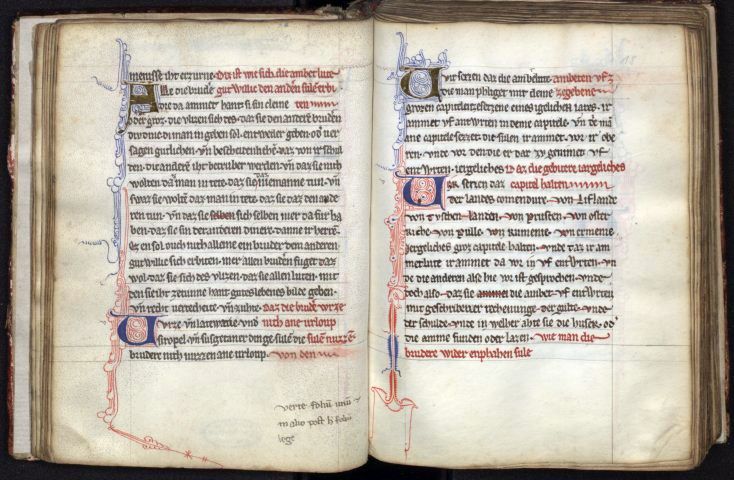 menisse iht erzurne. Diz ist wie sich die amber lute
Alle die brudē gut willic den anderē sulē erbi
die da ammet hant si sin cleine ten
oder groz. die vlizen sich des. daz sie den anderē brudēn
div dinc di man in geben sol. entweder geben. od ver
sagen gutlichen. vn̄ bescheidenheyde. daz von ir schul
den. die andere iht betrubet werden. vn̄ daz sie nich
wolten daz man in tete. daz sie niemanne tun. vn̄
swaz sie woltē daz man in tete. daz sie daz den ande
ren tun. vn̄ daz sie selben sich selben niet da fur ha
ben. daz sie sin der anderen dinere. danne ir herrē.
Ez en sol ouch nich alleine ein bruder dem anderen
gut willic sich erbiten. mer allen brudēn fuget daz
wol. daz sie sich des vlizen. daz sie allen luten. mit
den sie iht zetunne hant gutes lebenes bilde geben.
vn̄ zuhte. daz die brudē wrze
Wrze. vn̄ latewarie vnd nich ane urloup
siropel. vn̄ susgetaner dinge. sulē die sulē nuzzē
brudere nich nuzzen ane urloup. von den
verte foliū
in alio post h foliū
lege
Wir sezen daz die ambetlute amberen vf z
die man phliget mit deme zegebene
grozen capitele zesezene eines igelichen iares. ir
ammet vf antwrten in deme capitele. vn̄ deme
ane capitele sezzet die sulen ir ammet. wo ir obe
ren. vnde vor den die er dar zv genimet vf
entwrten. iergeliches daz die gebutere iargeliches
Wir sezzen daz capitel halten
der landes comendure. von Liflande
von Tvschen landen. von prussen. von oster
riche. von pulle. von Rumenie. von ermenie.
iergeliches groz capitele halten. vnde daz ir am
metlute ir ammet da vor in vf entwrten. vn
de die anderen alse hie vor ist gesprochen. vnde
doch also. daz sie ammet die ambet. vf entwrten
mit geschribener rechenunge. der gulte. vnde
der schulde. vnde in welher ahte sie die huser. od
die amme funden oder lazen. wie man die
brudere wider enphahen sule